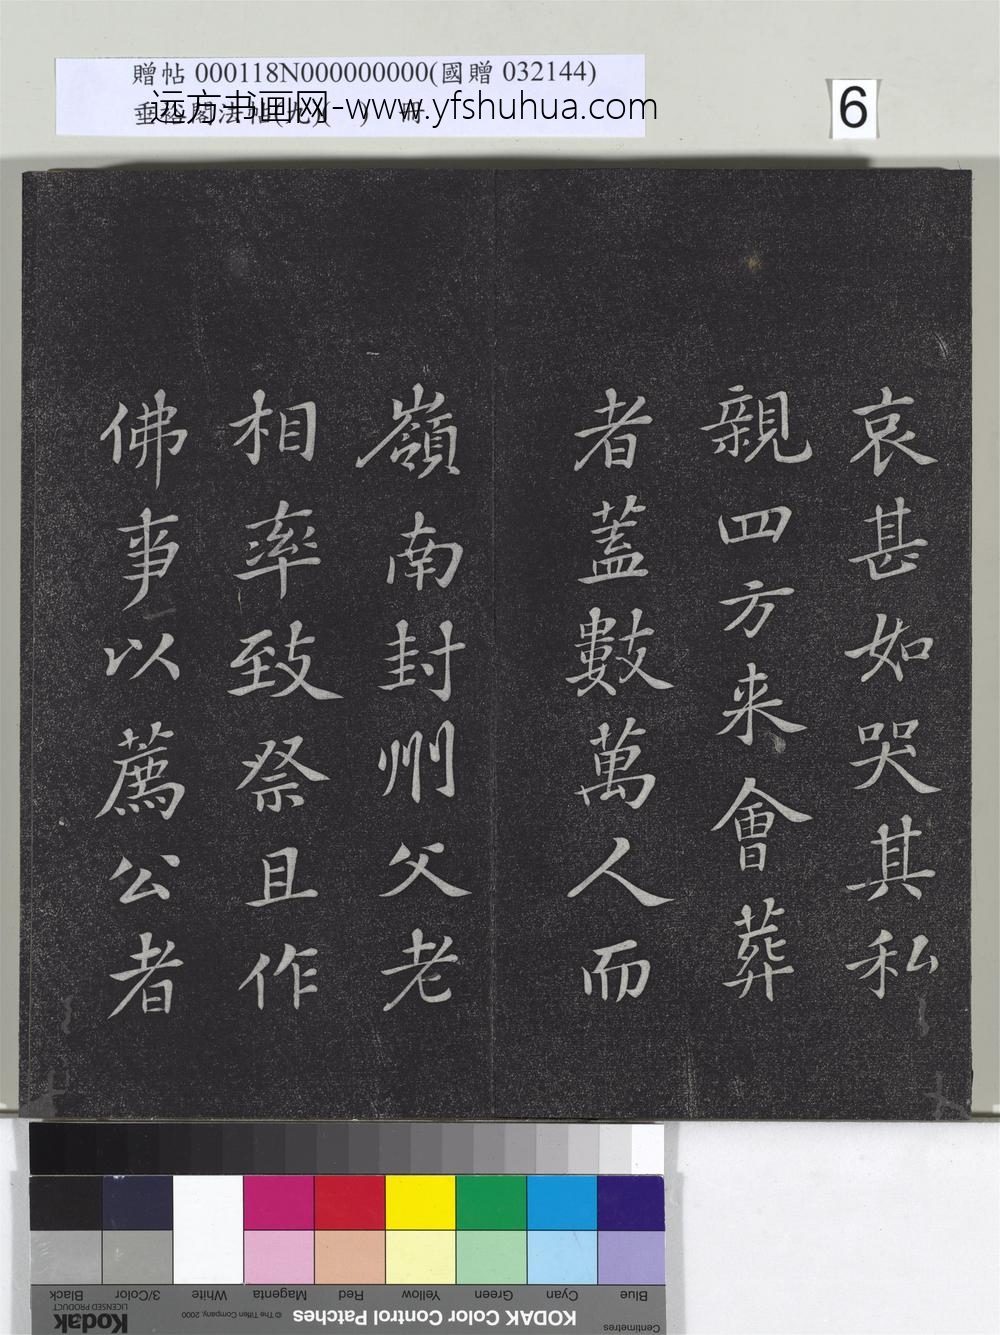 贈帖 000118N000000000(國贈 032144)
远方书画网-www.yfshuhua.com
6
哀甚如哭其私
親四方来會葬
者蓋數萬人而
嶺南封州父老
相率致祭且作
佛事以薦公者
Black
3/Color
White
Magenta
Red
Yellow
Green
Cyan
Blue
Kodak
LICENSED PRODUCT
© The Tiffen Company, 2000
KODAK Color Control Patches
Centimetres